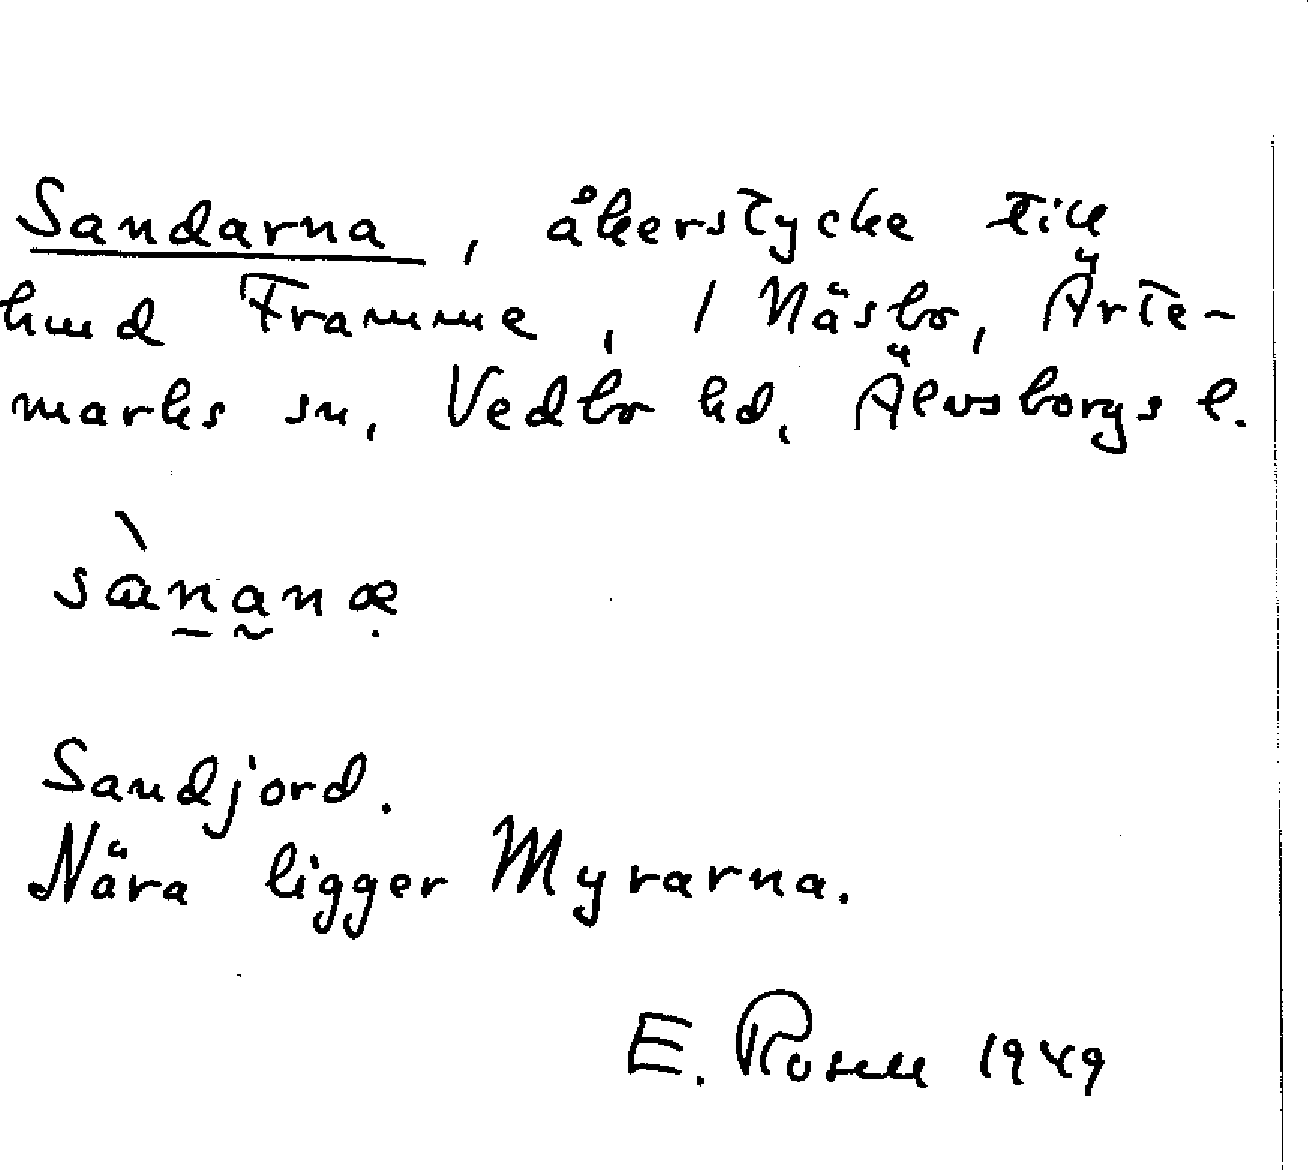 Sandarna, åkerstycke till
hmd Framme, 1 Näsbo, Ärte-
marks sn, Vedbo hd, Älvsborgs l.
sànanæ
Sandjord.
Nära ligger Myrarna.
E. Rosell 1949